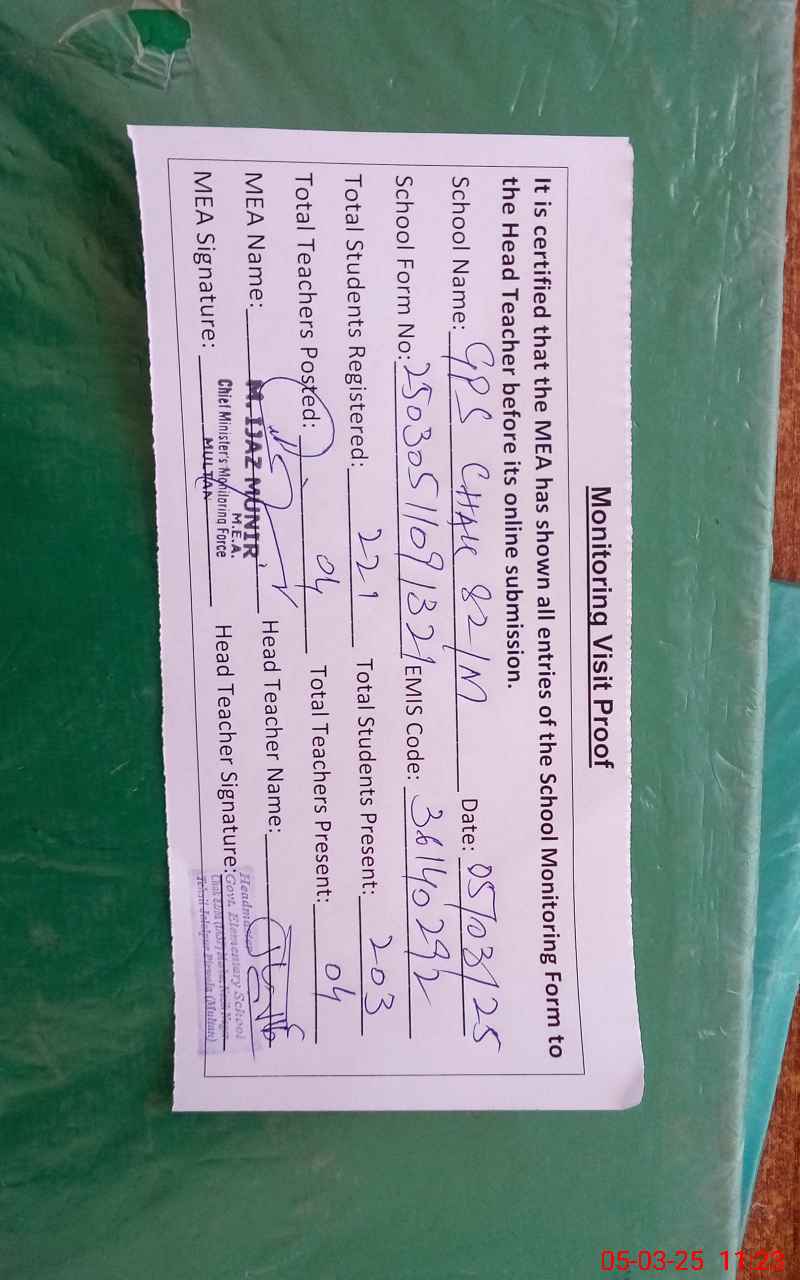 Monitoring Visit Proof
It is certified that the MEA has shown all entries of the School Monitoring Form to
the Head Teacher before its online submission.
School Name: GPS CHAK 82/M Date: 05/03/25
School Form No: 25030511091321 EMIS Code: 36140292
Total Students Registered: 221 Total Students Present: 203
Total Teachers Posted: 04 Total Teachers Present: 04
MEA Name: M. IJAZ MUNIR Head Teacher Name:
M.E.A.
Chief Minister's Monitoring Force
MULTAN
MEA Signature: Head Teacher Signature:
Headmaster
Govt. Elementary School
Tehsil Jalalpur Pirwala (Multan)
05-03-25 11:23